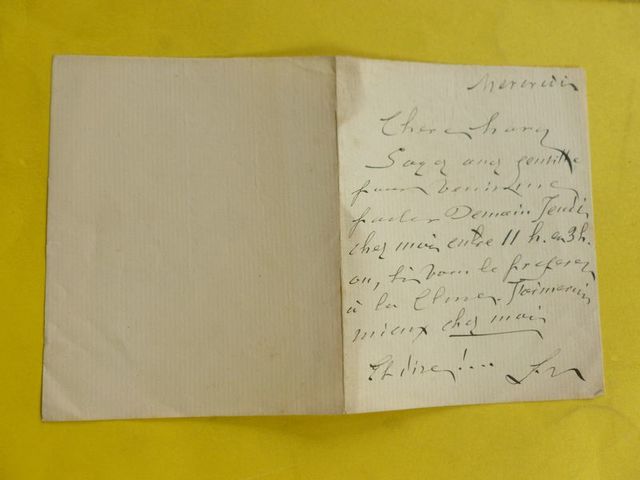 Mercredi
Chere
Soyez assez gentille
pour venir me
parler Demain Jeudi
chez moi entre 11 h. en 3 h.
ou, si vous le preferez
à la J'aimerais
mieux chez moi
Et dire!...